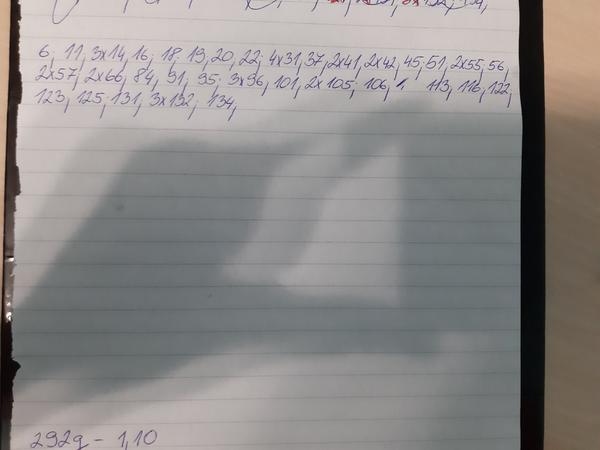 6, 11, 3x14, 16, 18, 19, 20, 22, 4x31, 37, 2x41, 2x42, 45, 51, 2x55, 56,
2x57, 2x66, 84, 91, 95, 3x96, 101, 2x105, 106, 1 113, 116, 122,
123, 125, 131, 3x132, 134,
292g - 1,10